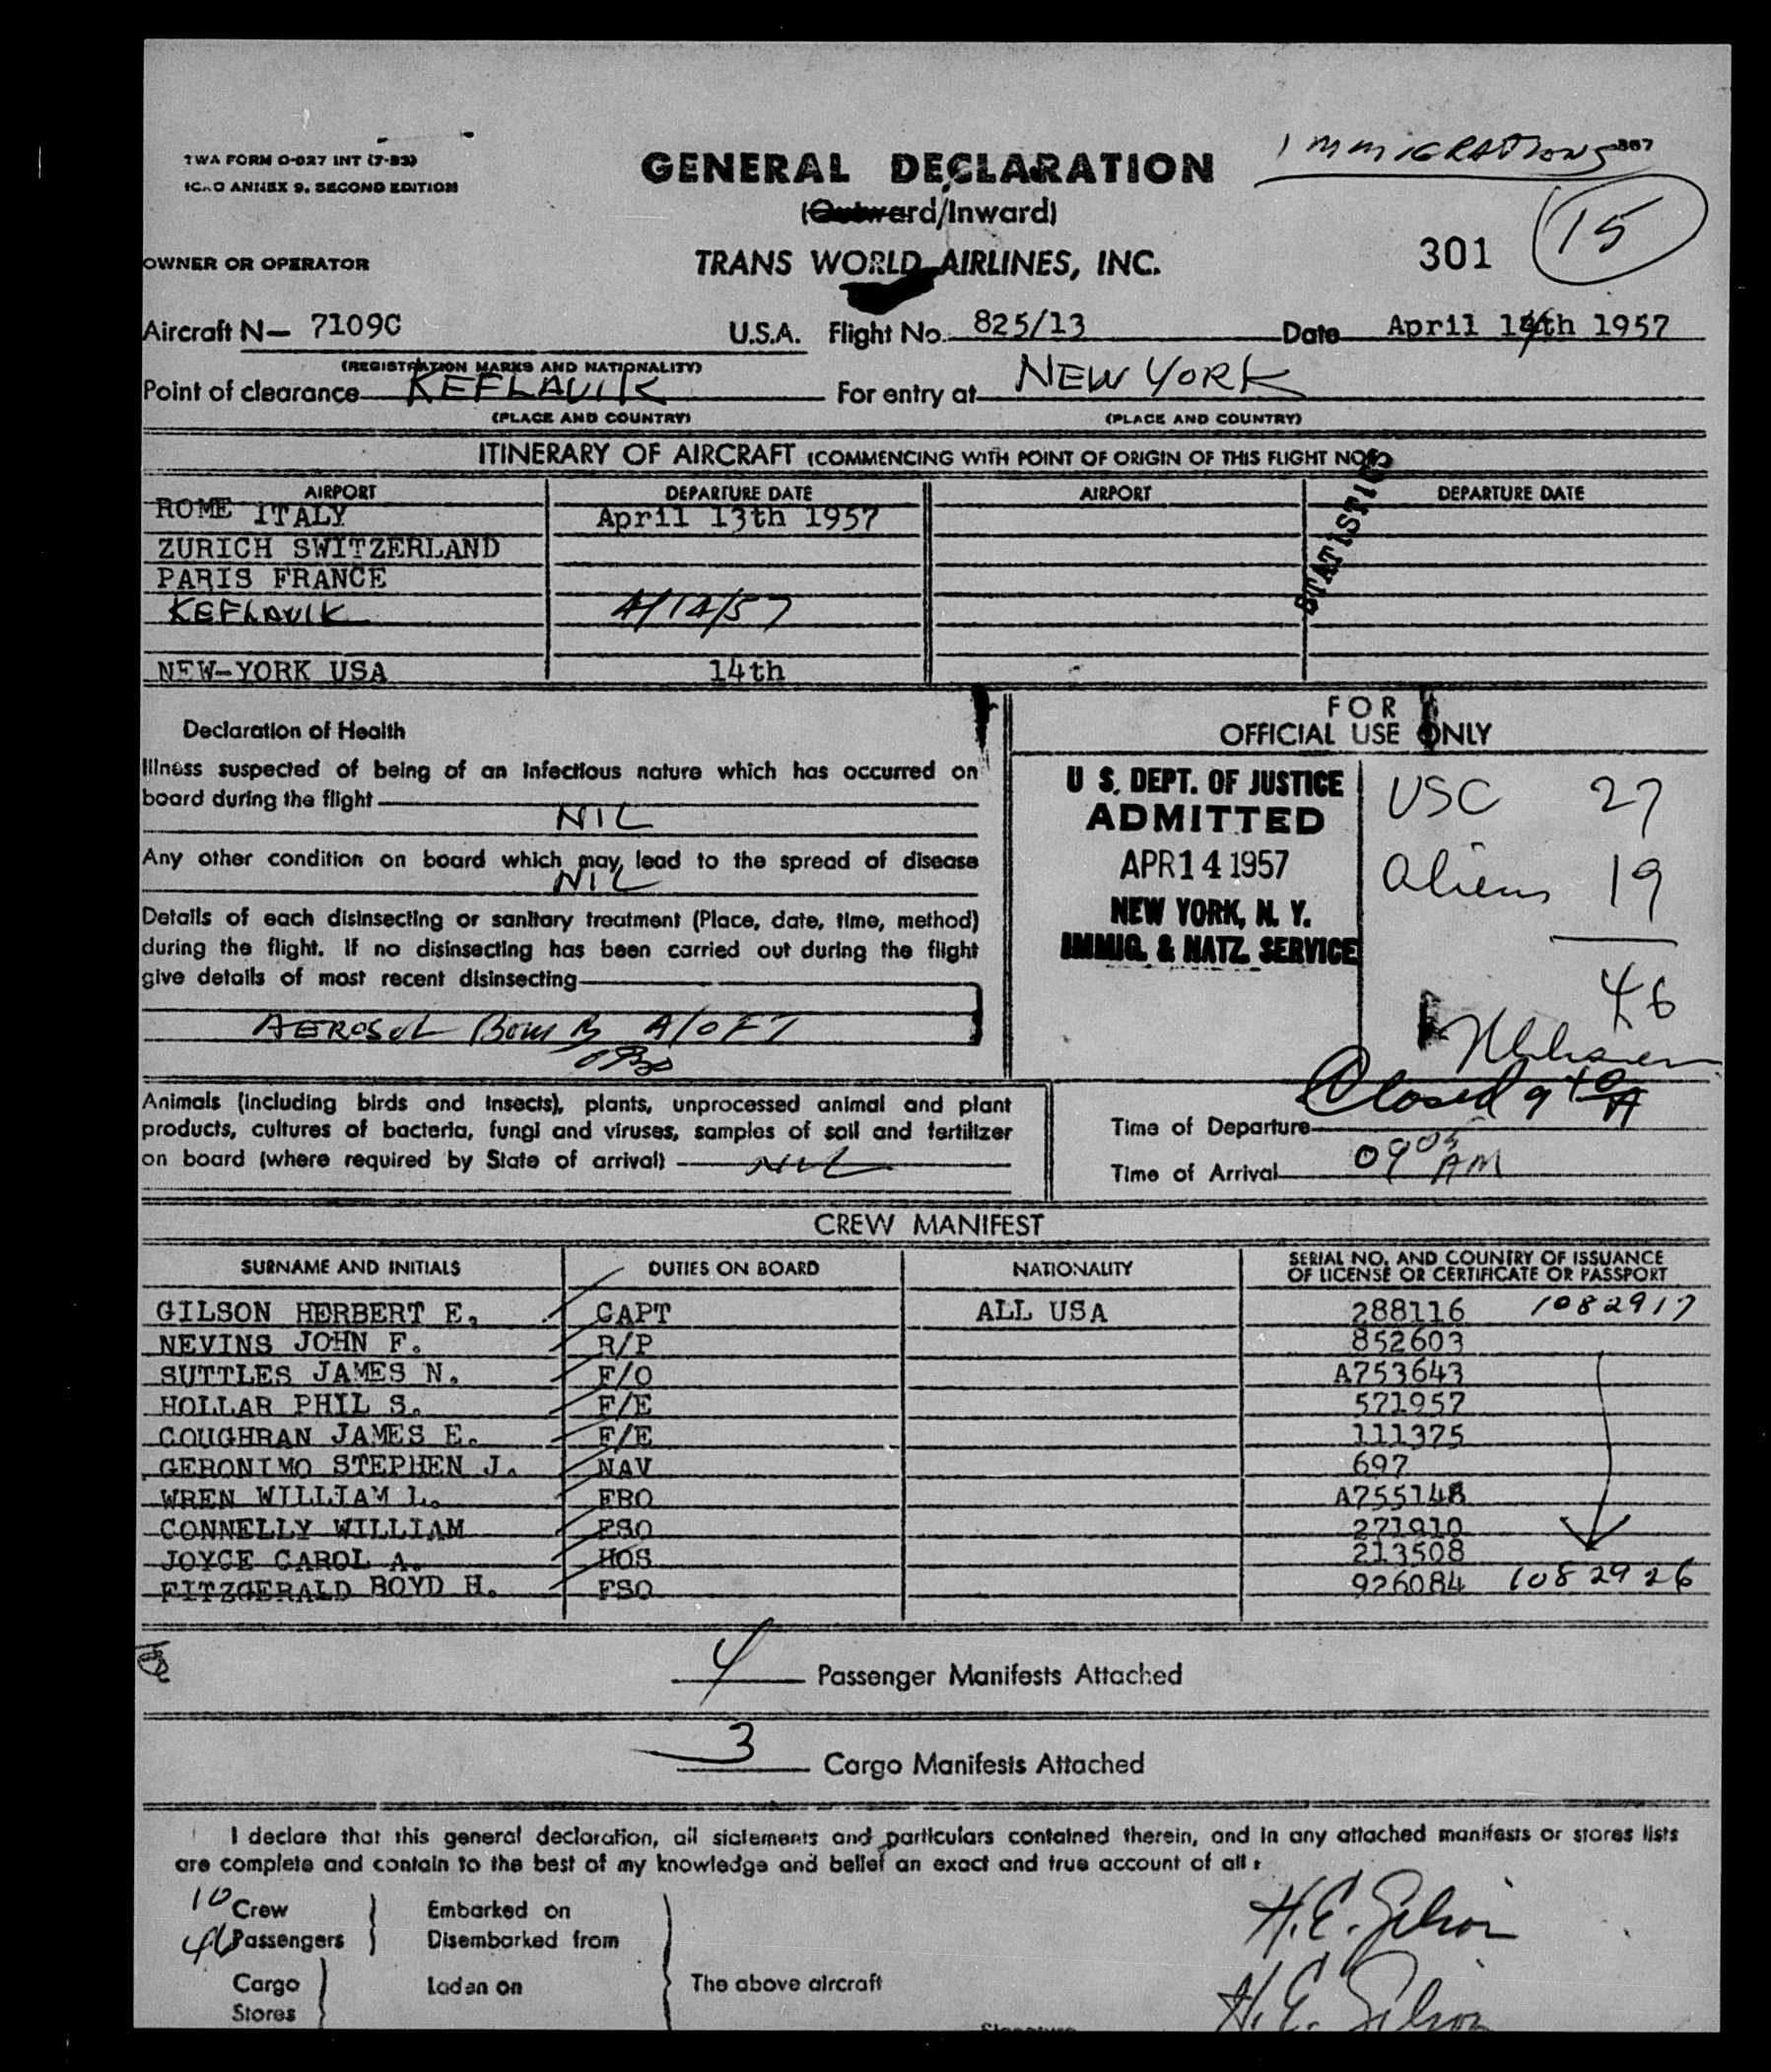 IMMIGRATIONS 867
TWA FORM O-027 INT (7-53)
ICAO ANNEX 9, SECOND EDITION
GENERAL DECLARATION
(Outward/Inward)
15
OWNER OR OPERATOR TRANS WORLD AIRLINES, INC. 301
Aircraft N— 7109C U.S.A. Flight No. 825/13 Date April 14th 1957
(REGISTRATION MARKS AND NATIONALITY)
Point of clearance KEFLAVIK For entry at NEW YORK
(PLACE AND COUNTRY) (PLACE AND COUNTRY)
ITINERARY OF AIRCRAFT (COMMENCING WITH POINT OF ORIGIN OF THIS FLIGHT NO.)
AIRPORT DEPARTURE DATE AIRPORT DEPARTURE DATE
ROME ITALY April 13th 1957
ZURICH SWITZERLAND
PARIS FRANCE
KEFLAVIK 4/14/57
NEW-YORK USA 14th
Declaration of Health
Illness suspected of being of an infectious nature which has occurred on
board during the flight
NIL
Any other condition on board which may lead to the spread of disease
NIL
Details of each disinsecting or sanitary treatment (Place, date, time, method)
during the flight. If no disinsecting has been carried out during the flight
give details of most recent disinsecting
AEROSOL BOMB A/OFT
FOR
OFFICIAL USE ONLY
U S. DEPT. OF JUSTICE
ADMITTED
APR 14 1957
NEW YORK, N. Y.
IMMIG. & NATZ. SERVICE
USC 27
Aliens 19
46
Closed 9 10 A
Animals (including birds and insects), plants, unprocessed animal and plant
products, cultures of bacteria, fungi and viruses, samples of soil and fertilizer
on board (where required by State of arrival) NIL
Time of Departure
Time of Arrival 0905 AM
CREW MANIFEST
SURNAME AND INITIALS DUTIES ON BOARD NATIONALITY SERIAL NO. AND COUNTRY OF ISSUANCE
OF LICENSE OR CERTIFICATE OR PASSPORT
GILSON HERBERT E. CAPT ALL USA 288116 1082917
NEVINS JOHN F. R/P 852603
SUTTLES JAMES N. F/O A753643
HOLLAR PHIL S. F/E 571957
COUGHRAN JAMES E. F/E 111375
GERONIMO STEPHEN J. NAV 697
WREN WILLIAM L. FRO A755148
CONNELLY WILLIAM FSO 271910
JOYCE CAROL A. HOS 213508
FITZGERALD BOYD H. FSO 926084 1082926
4 Passenger Manifests Attached
3 Cargo Manifests Attached
I declare that this general declaration, all statements and particulars contained therein, and in any attached manifests or stores lists
are complete and contain to the best of my knowledge and belief an exact and true account of all :
10 Crew Embarked on
46 Passengers Disembarked from
H.E. Gilson
Cargo Laden on The above aircraft
Stores
H.E. Gilson
Signature